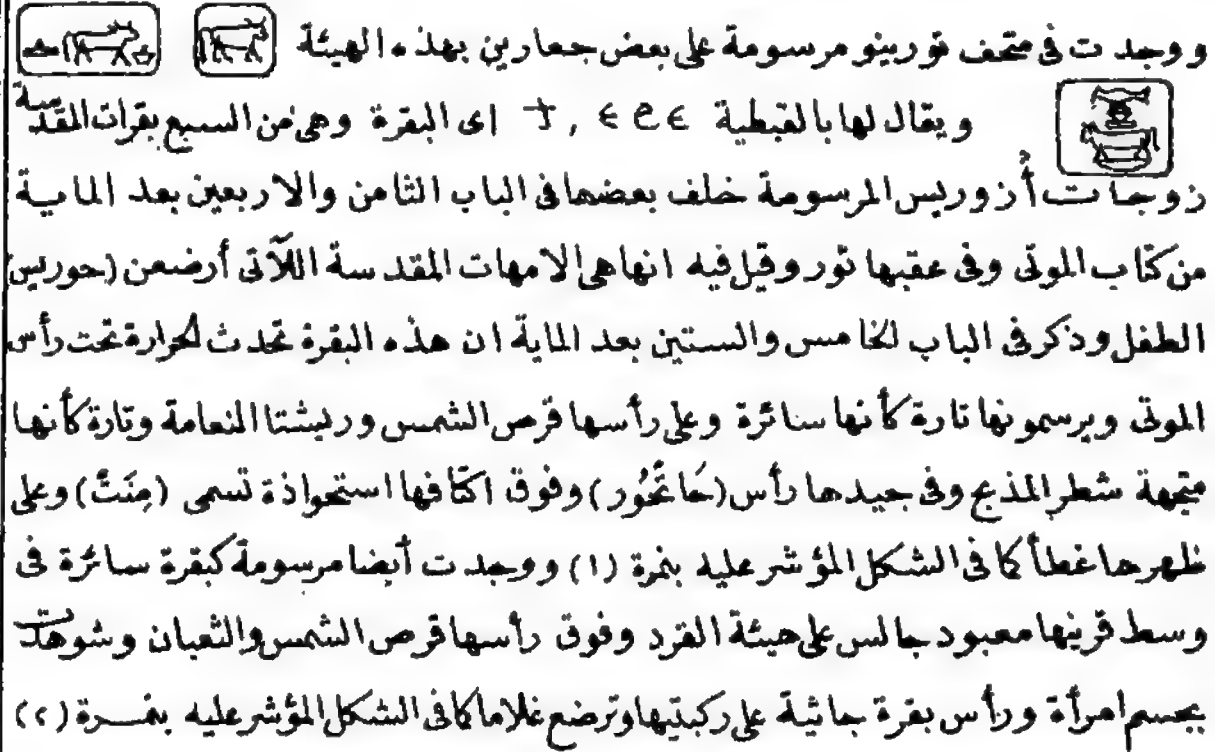 ووجدت فى متحف تورينو مرسومة على بعض جعارين بهذه الهيئة
ويقال لها بالقبطية ϯ, ⲉϩⲉ اى البقرة وهى من السبع بقرات المقدسة
زوجات أُزوريس المرسومة خلف بعضها فى الباب الثامن والاربعين بعد الماية
من كتاب الموتى وفى عقبها ثور وقيل فيه انها هى الامهات المقدسة اللآتى أرضعن (حوريس)
الطفل وذكر فى الباب الخامس والستين بعد الماية ان هذه البقرة تحدث الحرارة تحت رأس
الموتى ويرسمونها تارة كأنها سائرة وعلى رأسها قرص الشمس وريشتا النعامة وتارة كأنها
متجهة شطر المذبح وفى جيدها رأس (حَاتْحُور) وفوق اكتافها استحواذة تسمى (مِنَتْ) وعلى
ظهرها غطأ كما فى الشكل المؤشر عليه بنمرة (١) ووجدت أيضا مرسومة كبقرة سائرة فى
وسط قرينها معبود جالس على هيئة القرد وفوق رأسها قرص الشمس والثعبان وشوهدت
بجسم امرأة ورأس بقرة جاثية على ركبتيها وترضع غلاما كما فى الشكل المؤشر عليه بنمرة (٢)